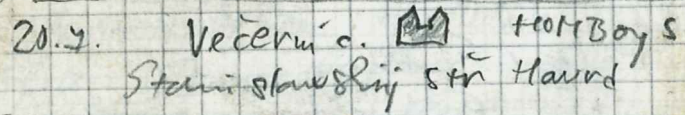 20.7. Večerní č. HOMBoyS
Stanislavskij stř Havrd